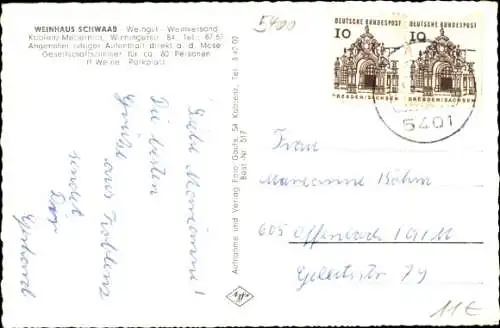 WEINHAUS SCHWAAB - Weingut - Weinversand
Koblenz-Metternich, Winningerstr. 84 Tel.: 87 67
Angenehm ruhiger Aufenthalt direkt a. d. Mosel
Gesellschaftszimmer für ca. 80 Personen
ff Weine Parkplatz
5400
DEUTSCHE BUNDESPOST
10
DRESDEN/SACHSEN
DEUTSCHE BUNDESPOST
10
DRESDEN/SACHSEN
5401
Aufnahme und Verlag Foto Gauls, 54 Koblenz, Tel. 3 40 02
Best.-Nr. 517
Liebe Marianne!
Die besten
Grüße aus Koblenz
sendet
Dir
Gerhard
Frau
Marianne Böhm
605 Offenbach a/M
Gellertstr. 79
11€